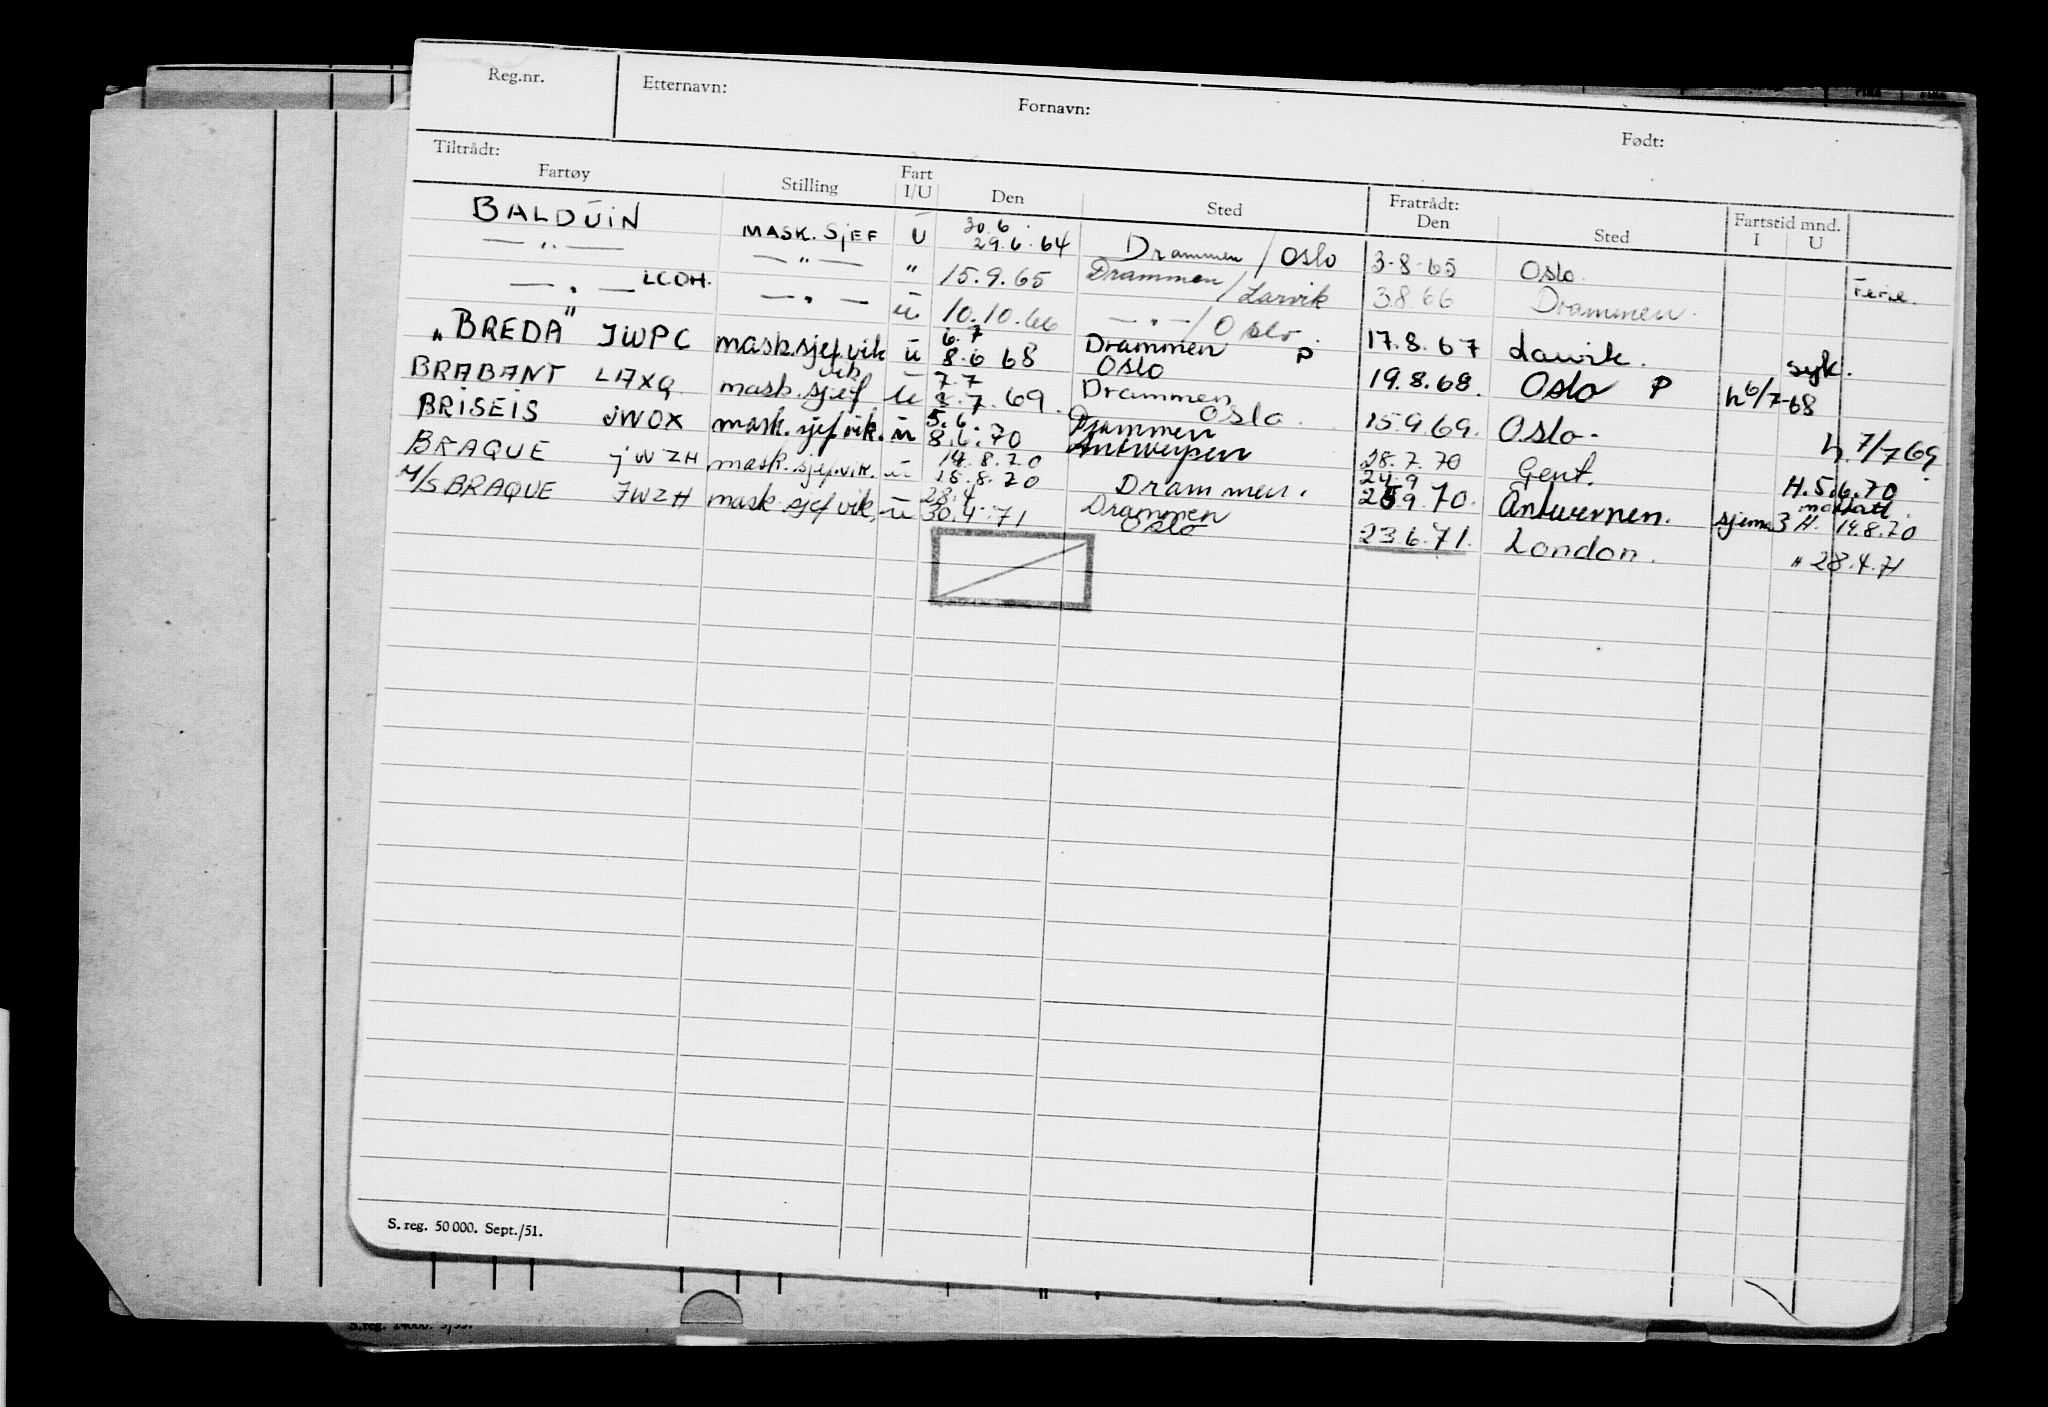 Reg.nr. Etternavn: Fornavn: Født:
Tiltrådt: Fratrådt: Fartstid mnd.
Fartøy Stilling Fart I/U Den Sted Den Sted I U
BALDUIN MASK. SJEF U 30.6. 29.6.64 Drammen / Oslo 3-8-65 Oslo. Ferie.
— " — — " — " 15.9.65 Drammen / Larvik 3 8 66 Drammen.
— " — LCOH. — " — U 10.10.66 — " — / Oslo. 17.8.67 Larvik. syk.
"BREDA" JWPC mask.sjef.vik U 6.7 8.6 68 Drammen Oslo P 19.8.68. Oslo P h 6/7-68
BRABANT LAXQ mask.sjef vik U 7.7 2.7.69. Drammen Oslo. 15 9 69. Oslo. h. 7/7 69
BRISEIS JWOX mask.sjef.vik. U 5.6. 8.6.70 Drammen Antwerpen 28.7.70 Gent. H. 5.6.70
BRAQUE JWZH mask.sjef.vik. U 14.8.70 18.8.70 Drammen. 24.9 25 9 70. Antwerpen. H. 14.8.70
M/S BRAQUE JWZH mask sjef vik. U 28.4 30.4.71 Drammen Oslo 23.6.71. London. " 28.4.71
S. reg. 50 000. Sept./51.